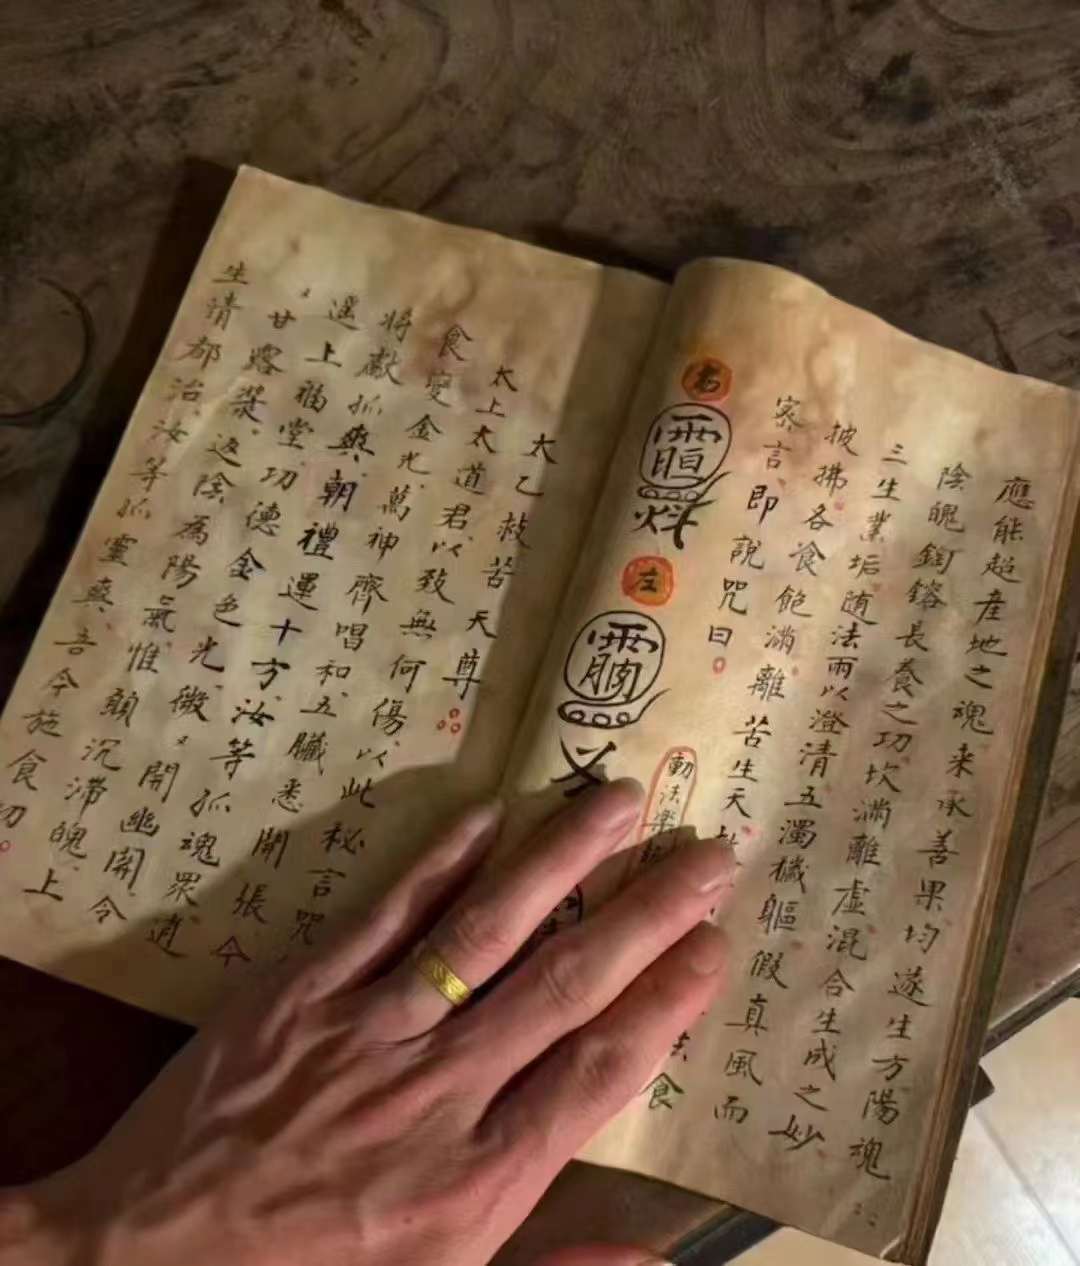 應能超産地之魂来承善果均遂生方陽魂
陰魄鈞鎔長養之功坎滿離虚混合生成之妙
三生業垢随法雨以澄清五濁穢軀假真風而
披拂各飡飽滿離苦生天
密言即說咒曰
動法樂
法食
右
左
太乙救苦天尊
太上太道君以致無何傷以此秘言咒
食變金光萬神齊唱和五臟悉開張今
將獻孤與朝禮運十方汝等孤魂眾逍
遥上福堂功德金色光微々開幽開令
々甘露漿返陰為陽氣惟願沉滯魄上
生清都治汝等孤靈真吾今施食切